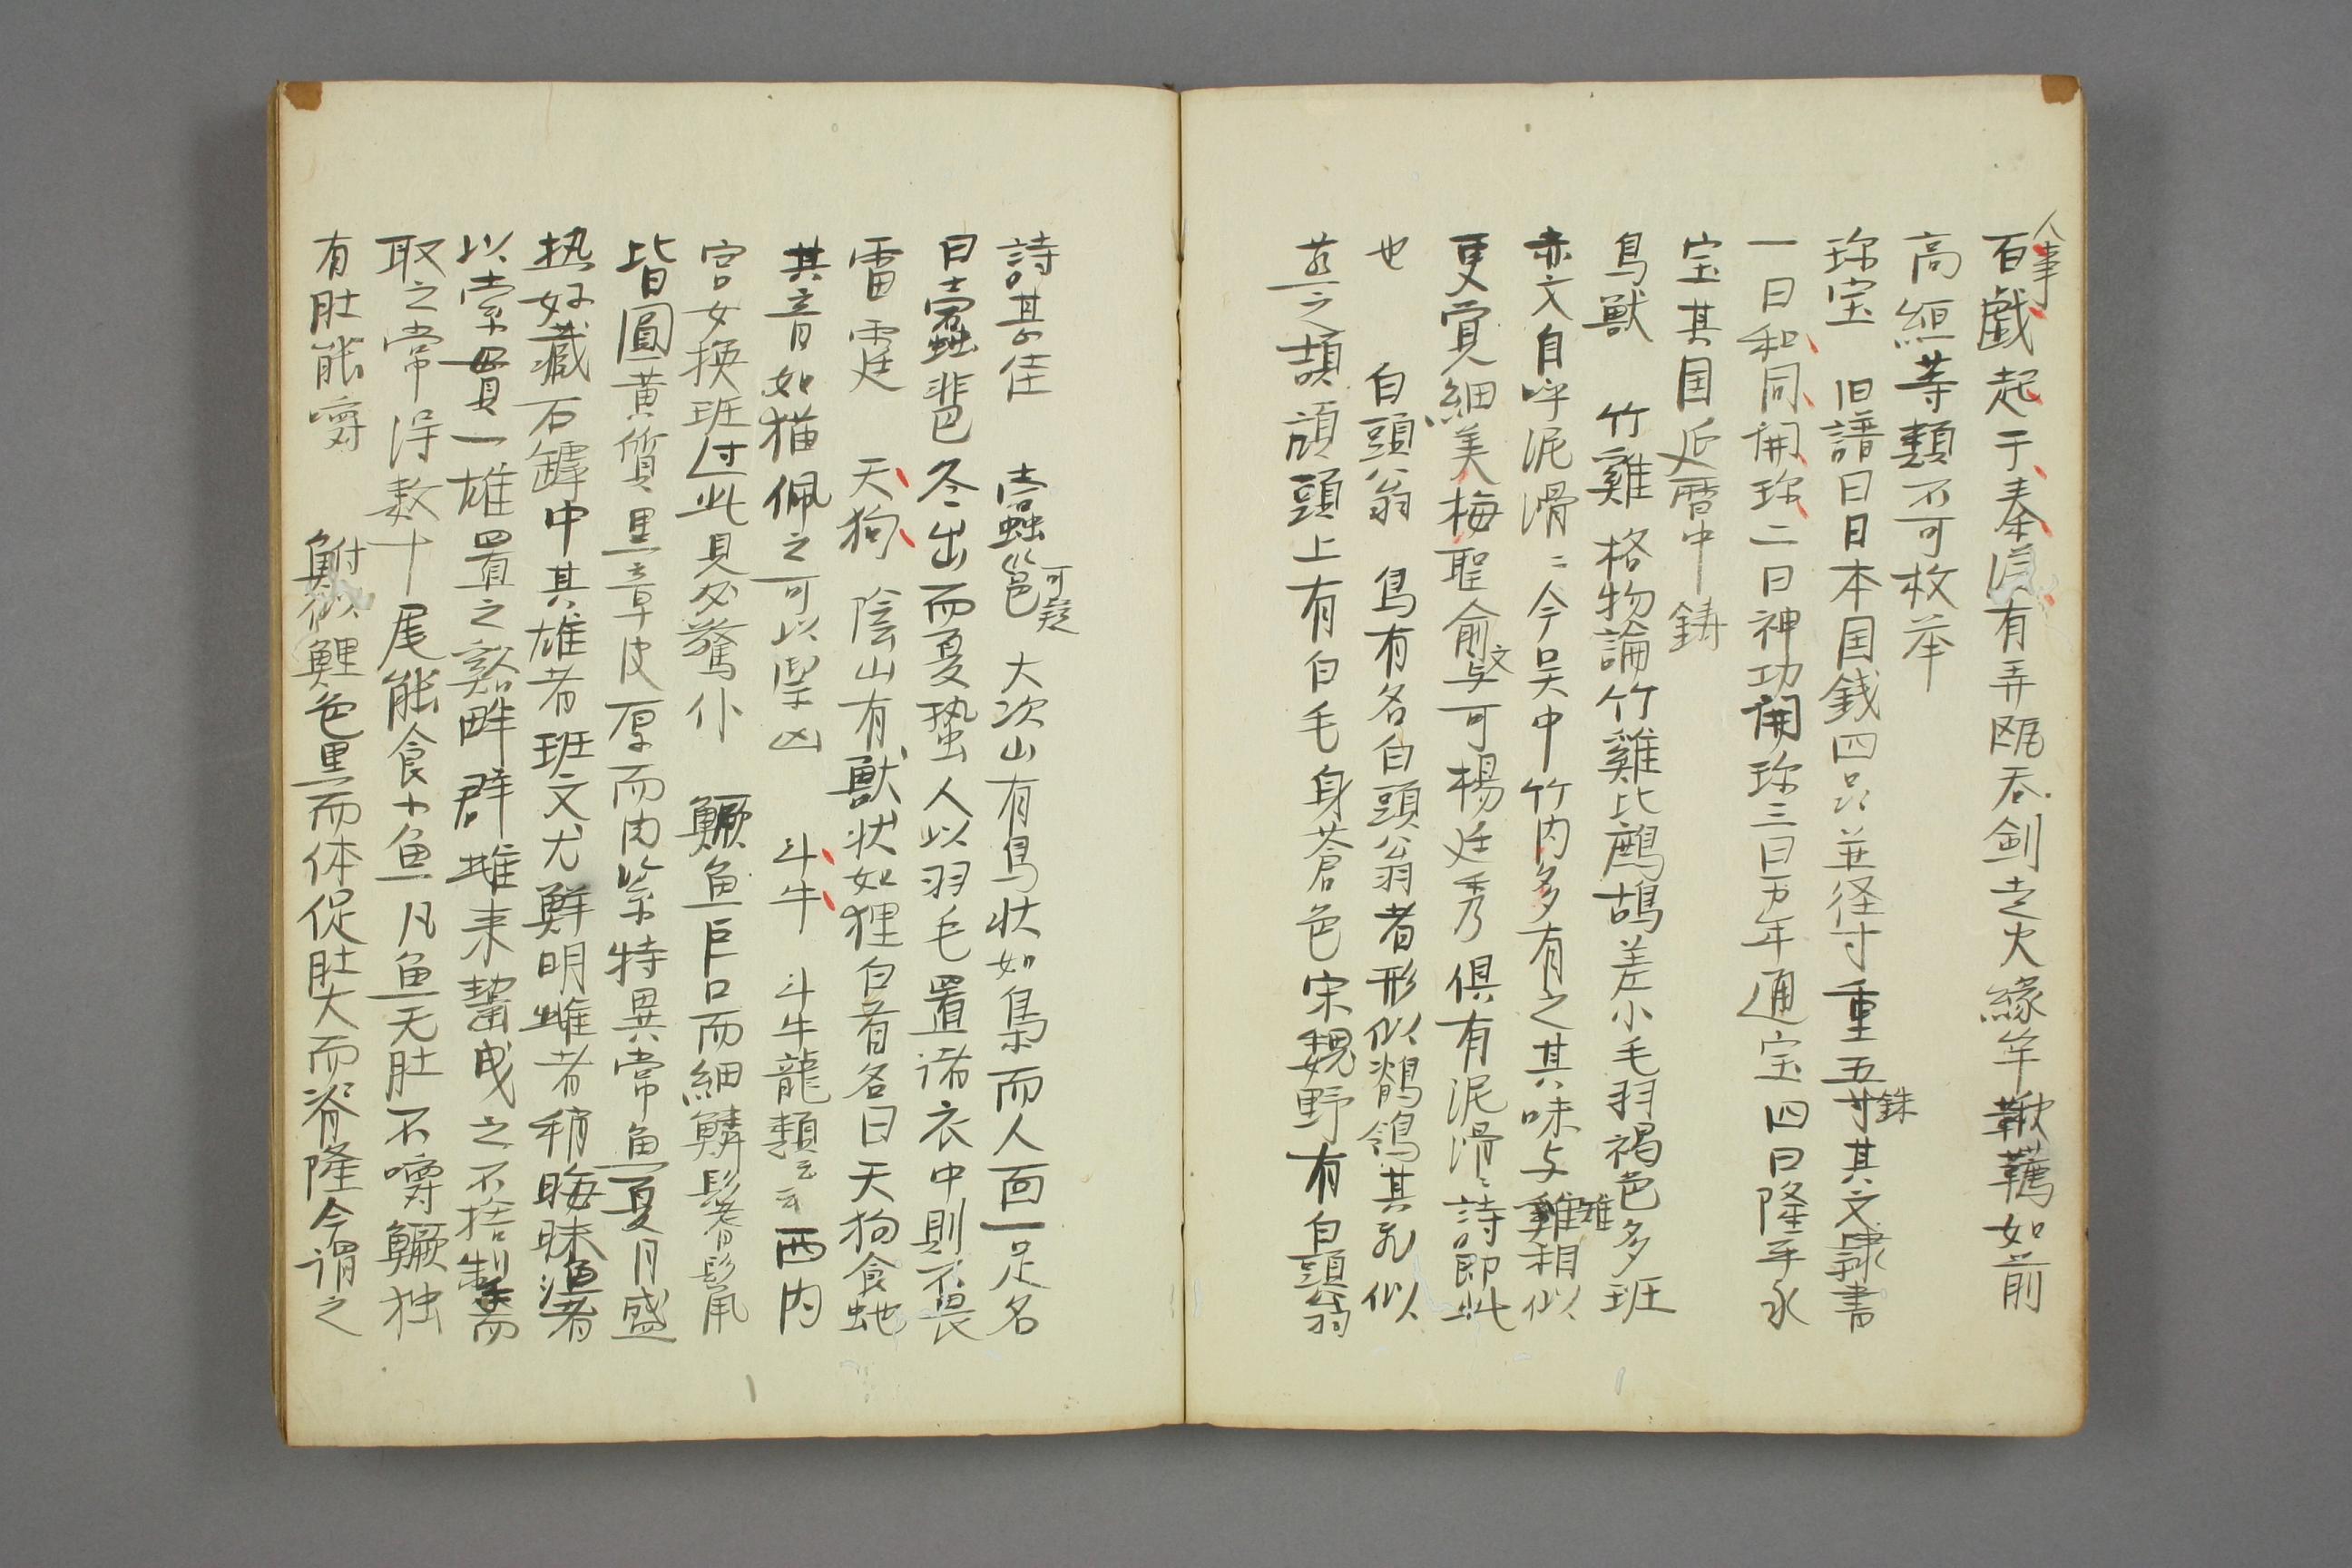 人事
百戯起于秦漢有弄甌呑剣走火縁竿鞦韆如前
高絙等類不可枚挙
珎宝　旧譜曰日本国銭四品並径寸重五寸其文隷書
銖
一曰和同開珎二曰神功開珎三曰万年通宝四曰隆平永
宝其国延暦中鋳
鳥獣　竹雞　格物論竹雞比鷓鴣差小毛羽褐色多班
赤文自呼泥滑〻今呉中竹内多有之其味与雞相似
雉
更覚細美梅聖俞与可楊廷秀倶有泥滑〻詩即此
文
也　白頭翁　鳥有名白頭翁者形似鶺鴒其飛似
燕之頡頏頭上有白毛身蒼色宋魏野有白頭翁
詩甚佳　橐𩇯　大次山有鳥状如梟而人面一足名
可疑
曰橐𩇯冬出而夏蟄人以羽毛置諸衣中則不畏
雷霆　天狗　陰山有獣状如狸白首名曰天狗食虵
其音如猫佩之可以禦凶　斗牛　斗牛龍類云云西内
宮女換班过此見必驚仆　鱖魚巨口而細鱗髻鬣
皆圓黄質黒章皮厚而肉紧特異常魚夏月盛
热好藏石罅中其雄者班文尤鮮明雌者稍晦昧漁者
以索貫一雄置之谿畔群雌来齧曳之不捨掣而
取之常得数十尾能食小魚凡魚无肚不嚼鱖独
有肚能嚼　鮒似鯉色黒而体促肚大而脊隆今谓之